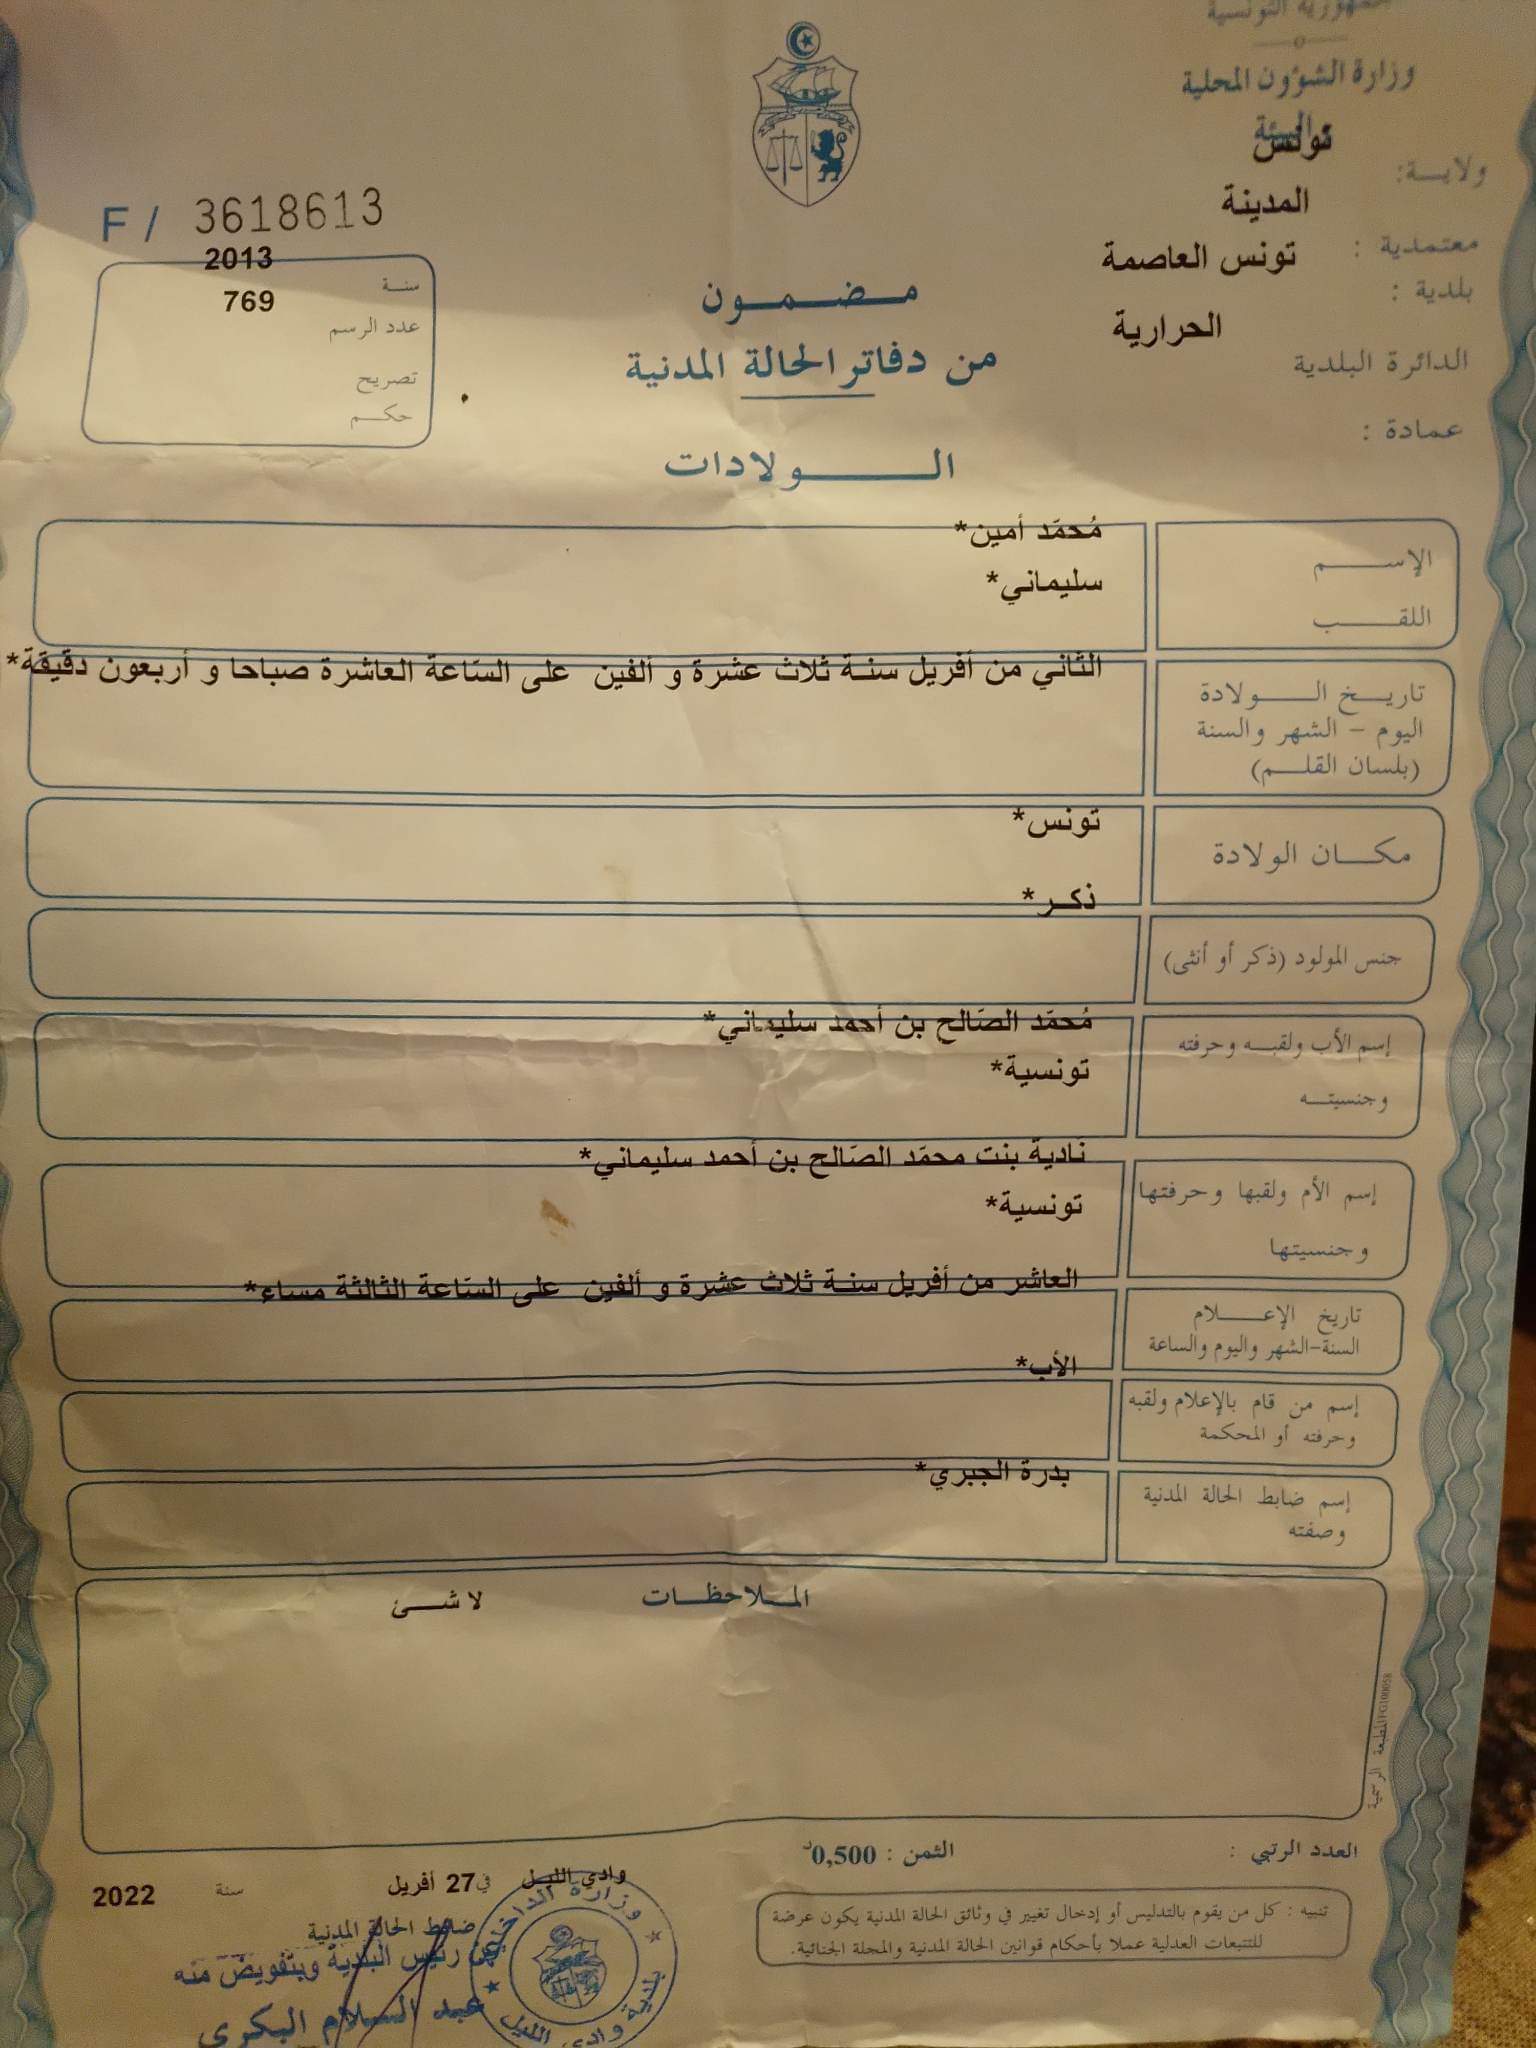 الجمهورية التونسية
وزارة الشؤون المحلية
و البيئة
ولايــة: تونس
معتمدية : المدينة
بلدية : تونس العاصمة
الدائرة البلدية الحرارية
عمادة :
F / 3618613
سنـة 2013
عدد الرسم 769
تصريح
حكــم
مـضـمـون
من دفاتر الحالة المدنية
الـــولادات
الإســـم مُحمّد أمين*
اللقـــب سليماني*
تاريــخ الـــولادة الثّاني من أفريل سنـة ثلاث عشرة و ألفين على السّاعة العاشرة صباحا و أربعون دقيقة*
اليوم – الشهر والسنة
(بلسان القلــم)
مكــان الولادة تونس*
جنس المولود (ذكر أو أنثى) ذكـر*
إسم الأب ولقبــه وحرفته مُحمّد الصّالح بن أحمد سليماني*
وجنسيتــه تونسية*
إسم الأم ولقبها وحرفتها نادية بنت محمّد الصّالح بن أحمد سليماني*
وجنسيتها تونسية*
تاريخ الإعـــلام العاشر من أفريل سنـة ثلاث عشرة و ألفين على السّاعة الثالثة مساء*
السنة-الشهر واليوم والساعة
إسم من قام بالإعلام ولقبه الأب*
وحرفته أو المحكمة
إسم ضابط الحالة المدنية بدرة الجبري*
وصفته
المـلاحظـات لا شــئ
المطبعة الرسمية FG100058
العدد الرتبي :
الثمن : 0,500د
تنبيه : كل من يقوم بالتدليس أو إدخال تغيير في وثائق الحالة المدنية يكون عرضة
للتتبعات العدلية عملا بأحكام قوانين الحالة المدنية والمجلة الجنائية.
وادي الليل في 27 أفريل سنة 2022
ضابط الحالة المدنية
عن رئيس البلدية وبتفويض منه
عبد السلام البكري
وزارة الداخلية
بلدية وادي الليل